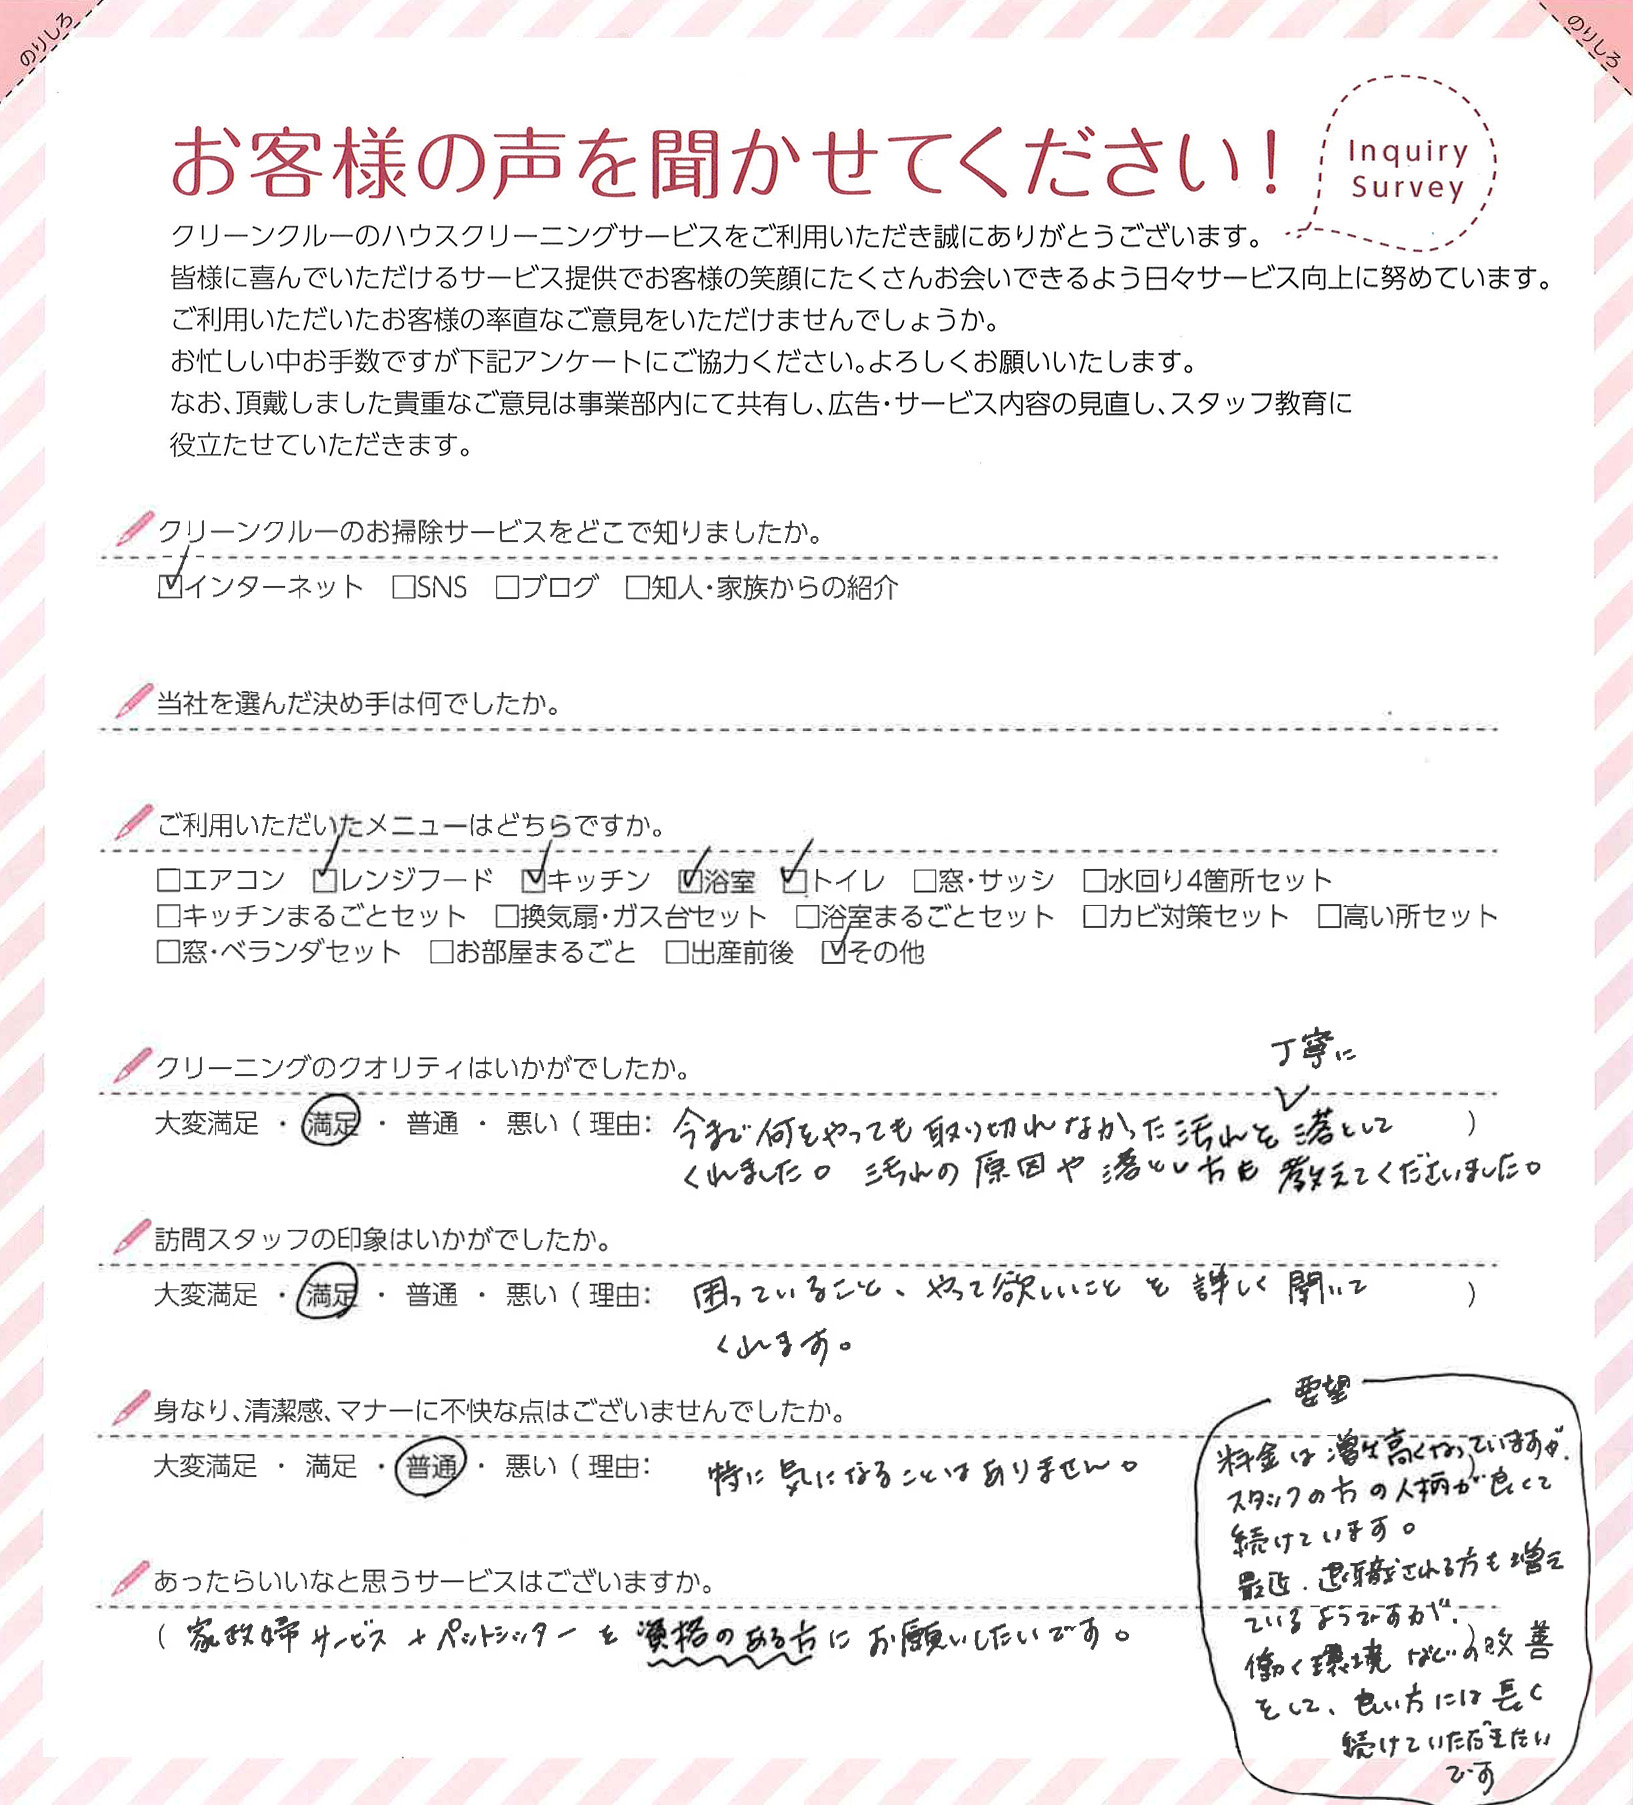 のりしろ
のりしろ
お客様の声を聞かせてください！
Inquiry
Survey
クリーンクルーのハウスクリーニングサービスをご利用いただき誠にありがとうございます。
皆様に喜んでいただけるサービス提供でお客様の笑顔にたくさんお会いできるよう日々サービス向上に努めています。
ご利用いただいたお客様の率直なご意見をいただけませんでしょうか。
お忙しい中お手数ですが下記アンケートにご協力ください。よろしくお願いいたします。
なお、頂戴しました貴重なご意見は事業部内にて共有し、広告・サービス内容の見直し、スタッフ教育に
役立たせていただきます。
クリーンクルーのお掃除サービスをどこで知りましたか。
☑インターネット □SNS □ブログ □知人・家族からの紹介
当社を選んだ決め手は何でしたか。
ご利用いただいたメニューはどちらですか。
□エアコン ☑レンジフード ☑キッチン ☑浴室 ☑トイレ □窓・サッシ □水回り4箇所セット
□キッチンまるごとセット □換気扇・ガス台セット □浴室まるごとセット □カビ対策セット □高い所セット
□窓・ベランダセット □お部屋まるごと □出産前後 ☑その他
クリーニングのクオリティはいかがでしたか。
丁寧に
大変満足 ・ 満足 ・ 普通 ・ 悪い ( 理由: 今まで何をやっても取り切れなかった汚れを落として )
くれました。汚れの原因や落とし方も教えてくださいました。
訪問スタッフの印象はいかがでしたか。
大変満足 ・ 満足 ・ 普通 ・ 悪い ( 理由: 困っていること、やって欲しいことを詳しく聞いて )
くれます。
身なり、清潔感、マナーに不快な点はございませんでしたか。
大変満足 ・ 満足 ・ 普通 ・ 悪い ( 理由: 特に気になることはありません。
あったらいいなと思うサービスはございますか。
( 家政婦サービス+ペットシッターを資格のある方にお願いしたいです。
要望
料金は増々高くなっていますが、
スタッフの方の人柄が良くて
続けています。
最近、退職される方も増え
ているようですが、
働く環境などの改善
をして、良い方には長く
続けていただきたい
です